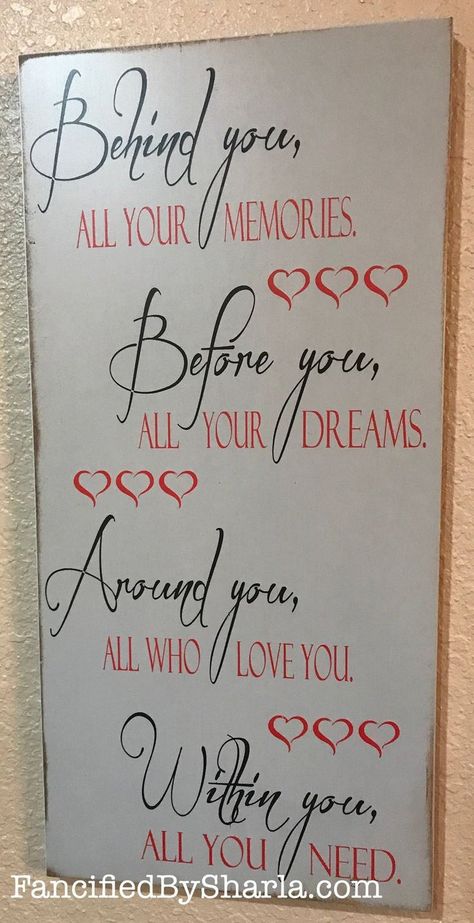 Behind you,
ALL YOUR MEMORIES.
Before you,
ALL YOUR DREAMS.
Around you,
ALL WHO LOVE YOU.
Within you,
ALL YOU NEED.
FancifiedBySharla.com